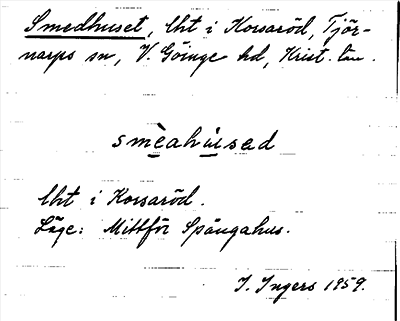 Smedhuset, lht i Korsaröd, Tjör-
narps sn, V. Göinge hd, Krist. län.
smèahùsad
lht i Korsaröd.
Läge: Mittför Spångahus.
I. Ingers 1959.